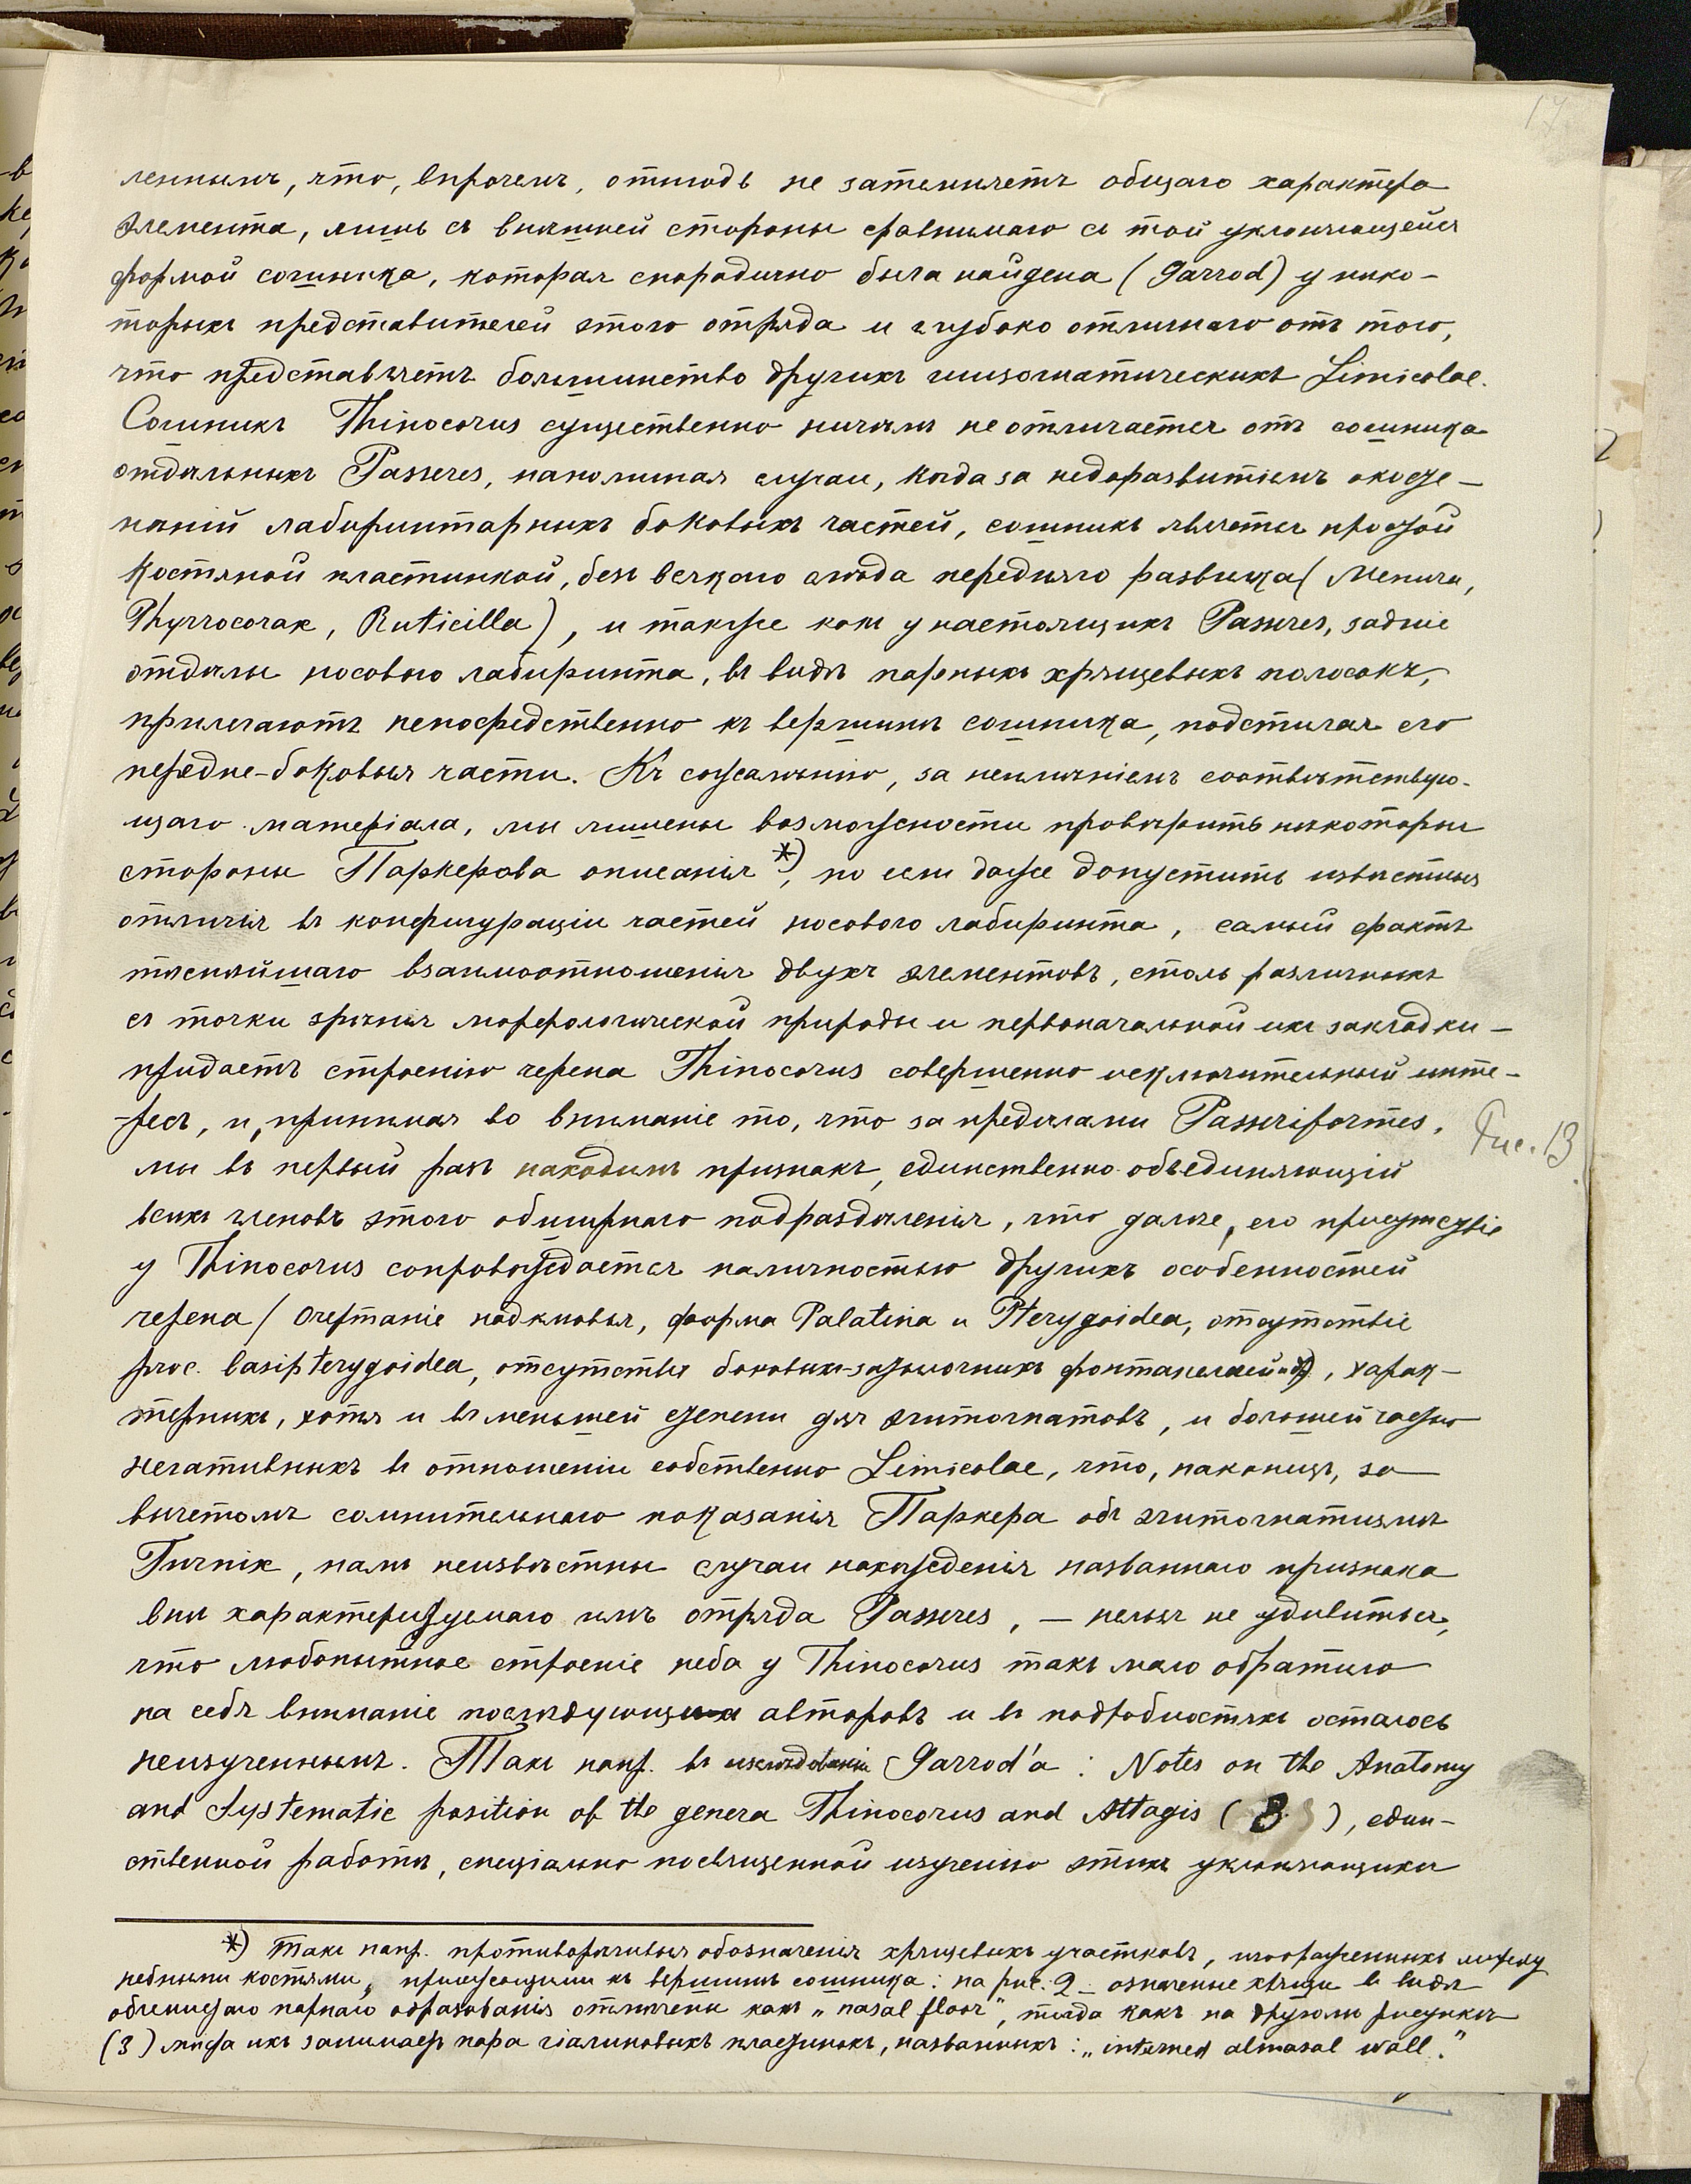 17
леннымъ, что, впрочемъ, отнюдь не затемняетъ общаго характера
элемента, лишь съ внѣшней стороны сравнимаго съ той уклоняющейся
формой сошника, которая спорадично была найдена (Garrod) у нѣко-
торыхъ представителей этого отряда и глубоко отличнаго отъ того,
что представляетъ большинство другихъ шизогнатическихъ Limicolae.
Сошникъ Thinocorus существенно ничѣмъ не отличается отъ сошника
отдѣльныхъ Passeres, напоминая случаи, когда за недоразвитіемъ окосте-
нѣній лабиринтарныхъ боковыхъ частей, сошникъ является простой
костяной пластинкой, безъ всякаго слѣда передняго развилка (Menura,
Phyrrocorax, Ruticilla), и также какъ у настоящихъ Passeres, задніе
отдѣлы носового лабиринта, въ видѣ парныхъ хрящевыхъ полосокъ,
прилегаютъ непосредственно къ вершинѣ сошника, подстилая его
передне-боковыя части. Къ сожалѣнію, за неимѣніемъ соотвѣтствую-
щаго матеріала, мы лишены возможности провѣрить нѣкоторыя
стороны Паркерова описанія *), но если даже допустить извѣстныя
отличія въ конфигураціи частей носового лабиринта, самый фактъ
тѣснѣйшаго взаимоотношенія двухъ элементовъ, столь различныхъ
съ точки зрѣнія морфологической природы и первоначальной ихъ закладки –
придаетъ строенію черепа Thinocorus совершенно исключительный инте-
-ресъ, и, принимая во вниманіе то, что за предѣлами Passeriformes,
Рис. 13
мы въ первый разъ находимъ признакъ, единственно объединяющій
всѣхъ членовъ этого обширнаго подраздѣленія, что далѣе, его присутствіе
у Thinocorus сопровождается наличностью другихъ особенностей
черепа (очертаніе надклювья, форма Palatina и Pterygoidea, отсутствіе
proc. basipterygoidea, отсутствіе боковыхъ-затылочныхъ фонтанелей), харак-
терныхъ, хотя и въ меньшей степени для эгитогнатовъ, и большей частью
негативныхъ въ отношеніи собственно Limicolae, что, наконецъ, за
вычетомъ сомнительнаго показанія Паркера объ эгитогнатизмѣ
Turnix, намъ неизвѣстны случаи нахожденія названнаго признака
внѣ характеризуемаго имъ отряда Passeres, – нельзя не удивиться,
что любопытное строеніе неба у Thinocorus такъ мало обратило
на себя вниманіе послѣдующихъ авторовъ и въ подробностяхъ осталось
неизученнымъ. Такъ напр. въ изслѣдованіи Garrod'a: Notes on the Anatomy
and Systematic position of the genera Thinocorus and Attagis (3), един-
ственной работѣ, спеціально посвященной изученію этихъ уклоняющихся
*) Такъ напр. противорѣчивыя обозначенія хрящевыхъ участковъ, изображенныхъ между
небными костями, прилежащими къ вершинѣ сошника: на рис. 2 – означенные хрящи въ видѣ
парнаго образованія отмѣчены какъ „nasal floor", тогда какъ на другомъ рисункѣ
(3) мѣста ихъ занимаетъ пара гіалиновыхъ пластинокъ, названныхъ: „interned alinasal wall."